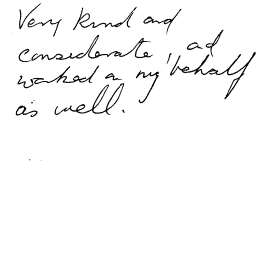 Very kind and
considerate, ad
worked on my behalf
as well.